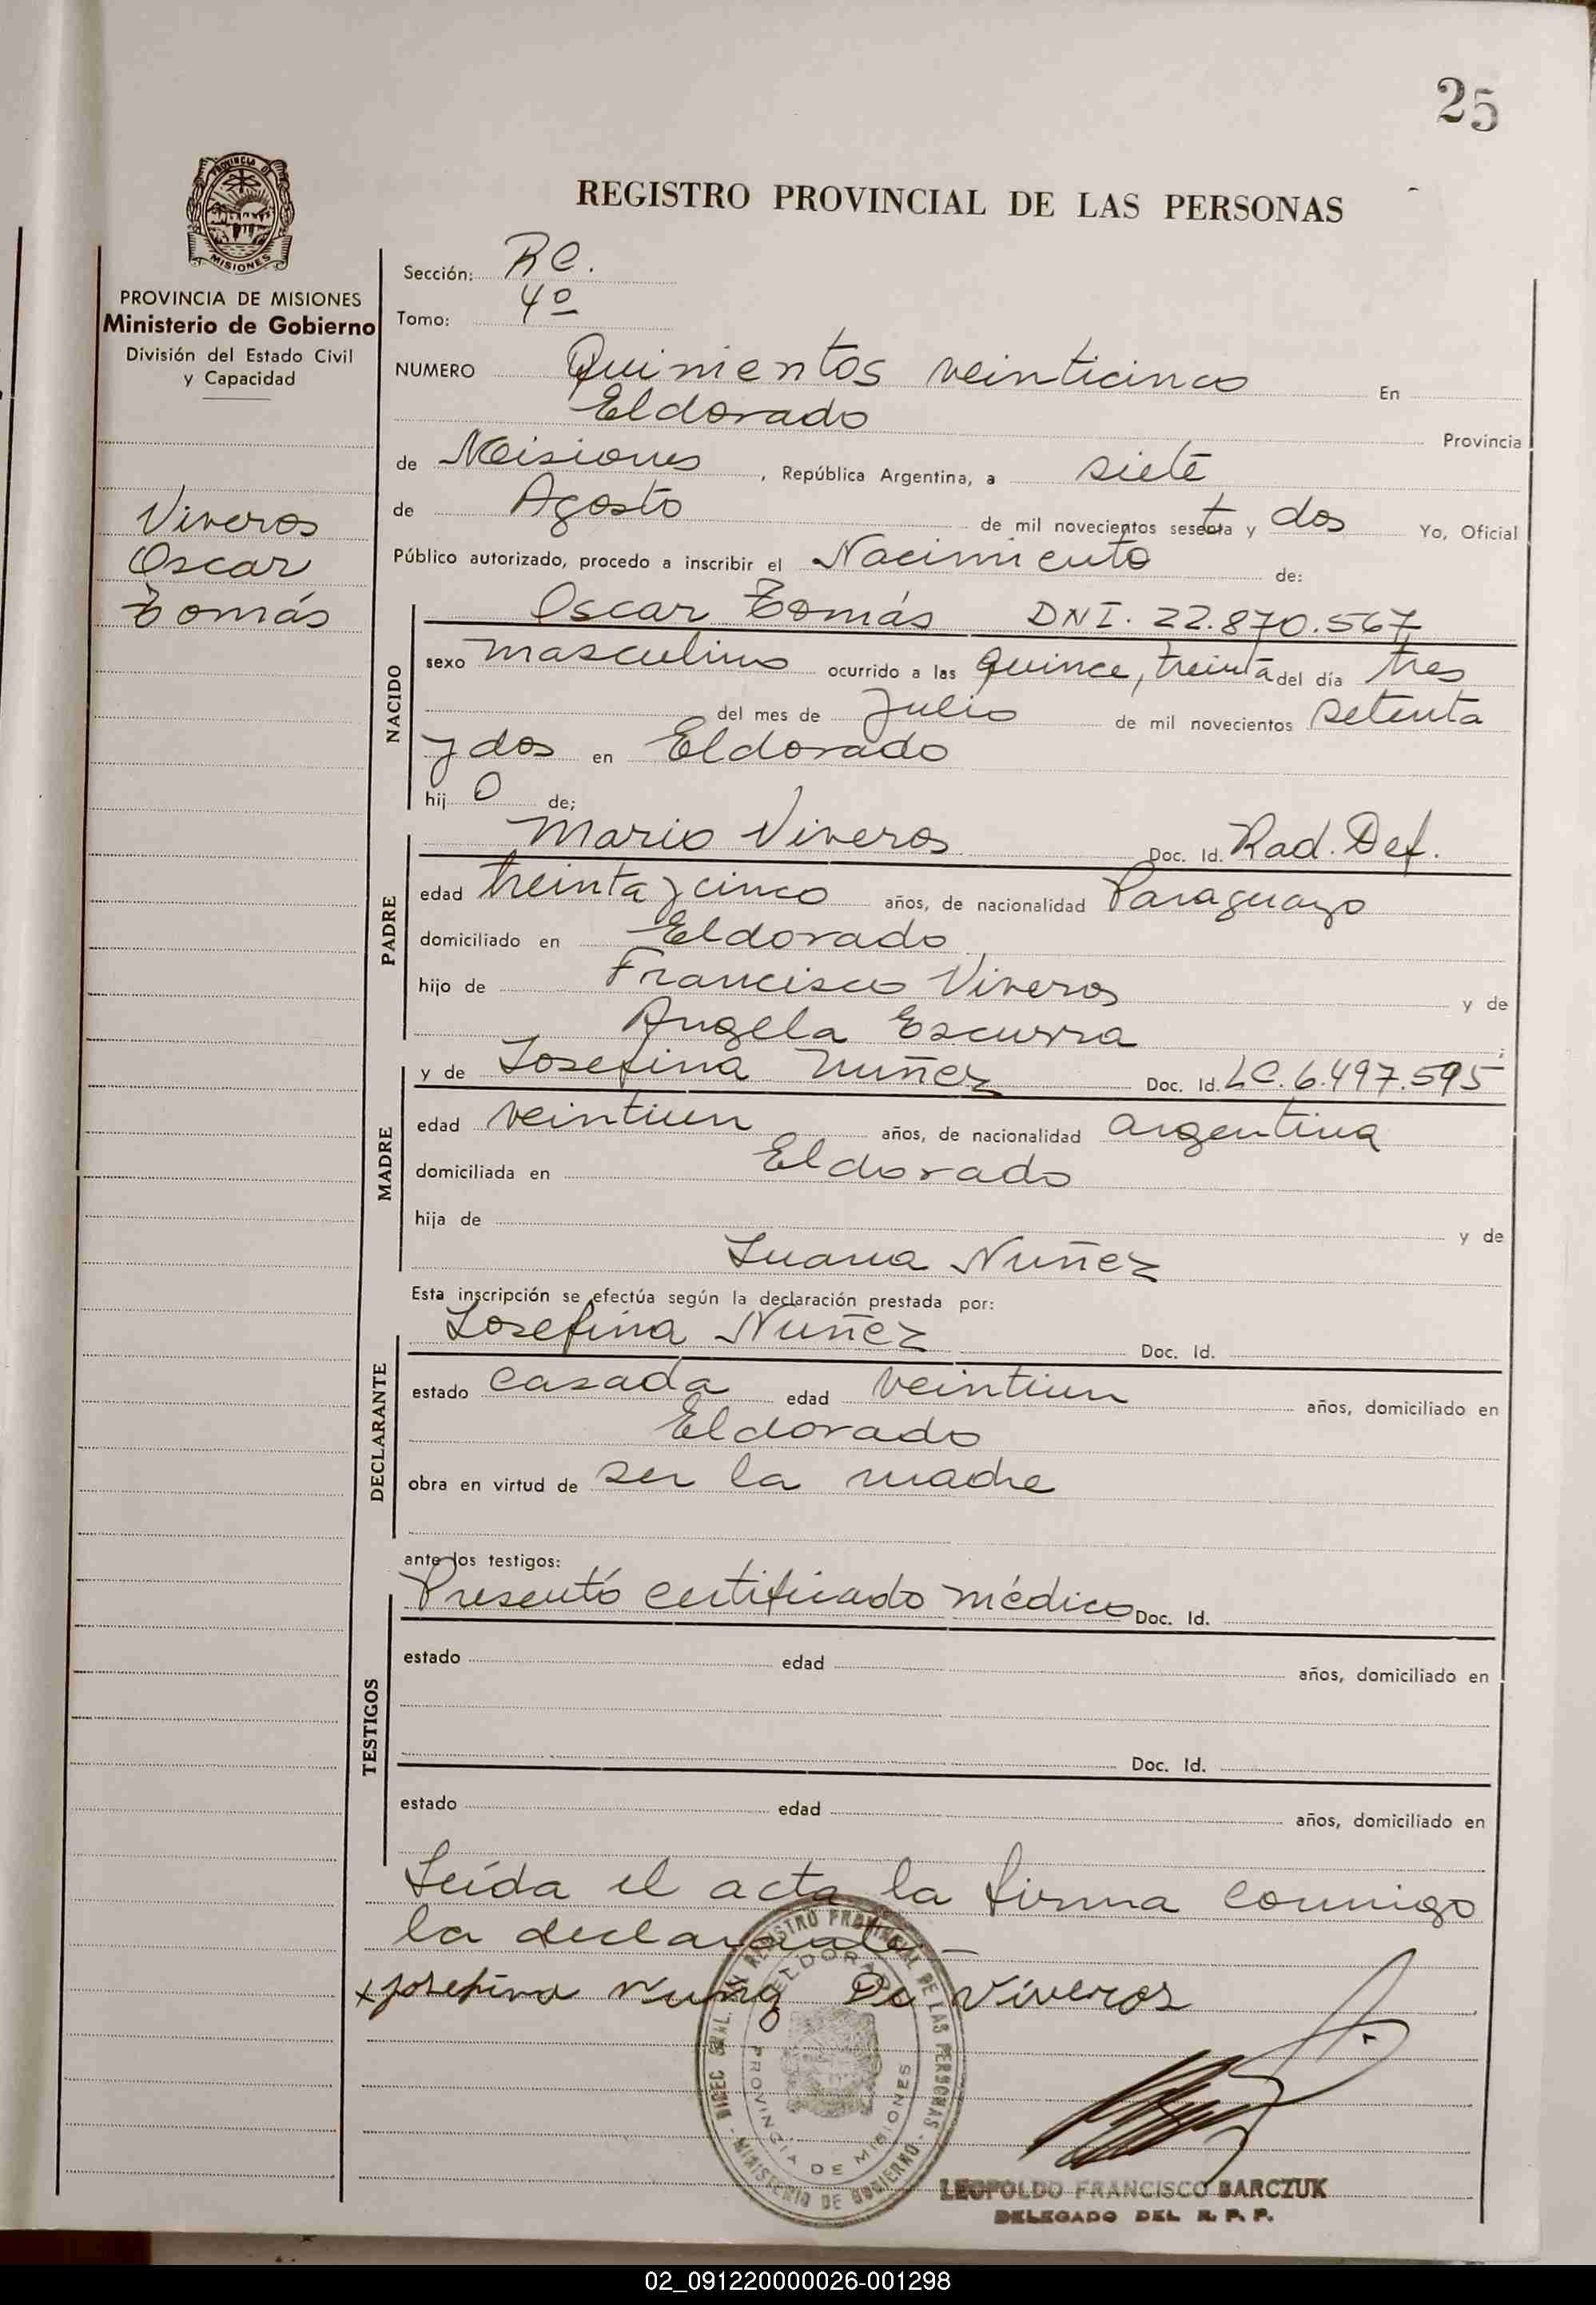 25
REGISTRO PROVINCIAL DE LAS PERSONAS
PROVINCIA DE MISIONES
MISIONES
PROVINCIA DE MISIONES
Ministerio de Gobierno
División del Estado Civil
y Capacidad
Viveros
Oscar
Tomás
Sección: RC.
Tomo: 4º
NUMERO Quinientos veinticinco En
Eldorado Provincia
de Misiones, República Argentina, a siete
de Agosto de mil novecientos setenta y dos Yo, Oficial
Público autorizado, procedo a inscribir el Nacimiento de:
NACIDO
Oscar Tomás DNI. 22.870.567
sexo masculino ocurrido a las quince, treinta del día tres
del mes de Julio de mil novecientos setenta
y dos en Eldorado
hij o de;
PADRE
Mario Viveros Doc. Id. Rad. Def.
edad treinta y cinco años, de nacionalidad Paraguayo
domiciliado en Eldorado
hijo de Francisco Viveros y de
Angela Escurra;
MADRE
y de Josefina Nuñez Doc. Id. LC. 6.497.595
edad veintiun años, de nacionalidad argentina
domiciliada en Eldorado
hija de y de
Juana Nuñez
Esta inscripción se efectúa según la declaración prestada por:
DECLARANTE
Josefina Nuñez Doc. Id.
estado casada edad veintiun años, domiciliado en
Eldorado
obra en virtud de ser la madre
ante los testigos:
TESTIGOS
Presentó certificado médico Doc. Id.
estado edad años, domiciliado en
Doc. Id.
estado edad años, domiciliado en
Leída el acta la firma conmigo
la declarante.-
x Josefina Nuñez De Viveros
REGISTRO PROVINCIAL DE LAS PERSONAS
MINISTERIO DE GOBIERNO
ELDORADO
PROVINCIA DE MISIONES
LEOPOLDO FRANCISCO BARCZUK
DELEGADO DEL R. P. P.
02_091220000026-001298